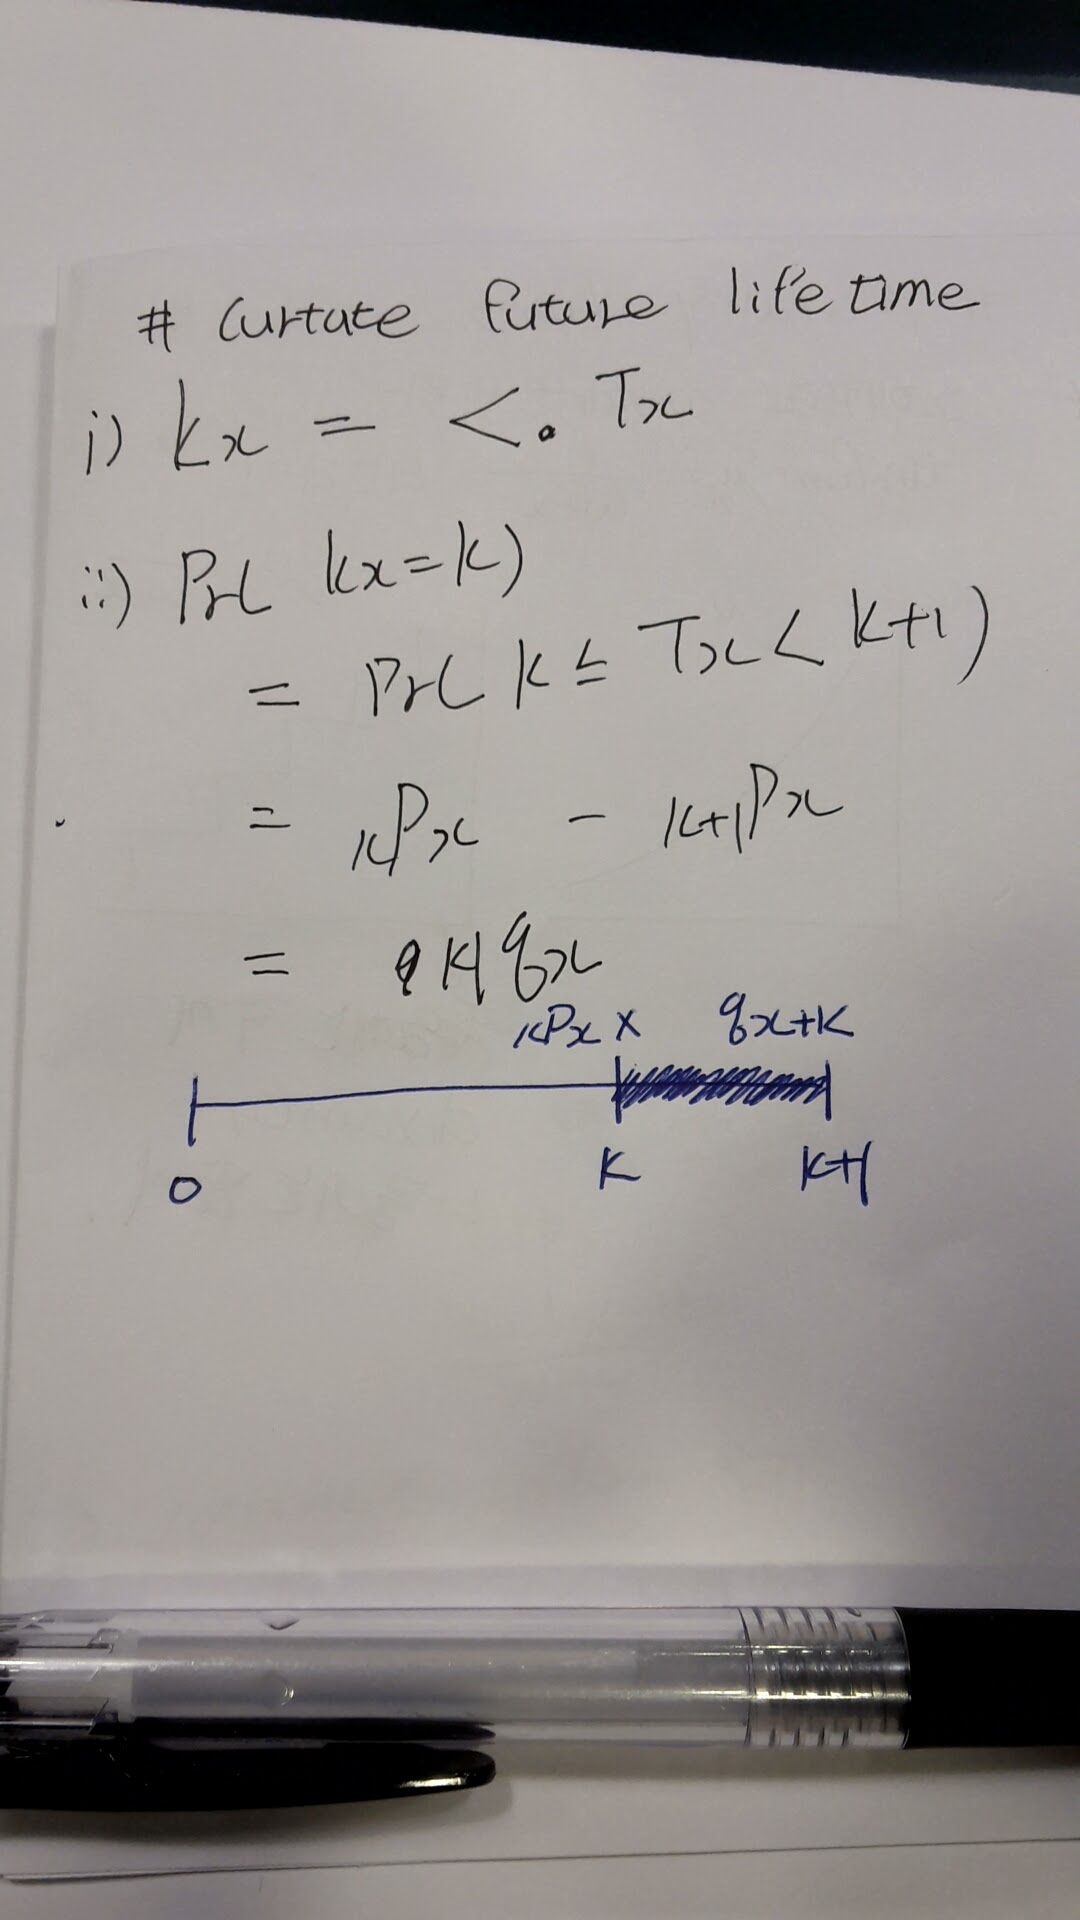 # Curtate future lifetime
i) Kx = <. Tx
ii) Pr( Kx=k)
= Pr( k ≤ Tx < k+1)
= kPx - k+1Px
= k|qx
kPx × qx+k
0 k k+1